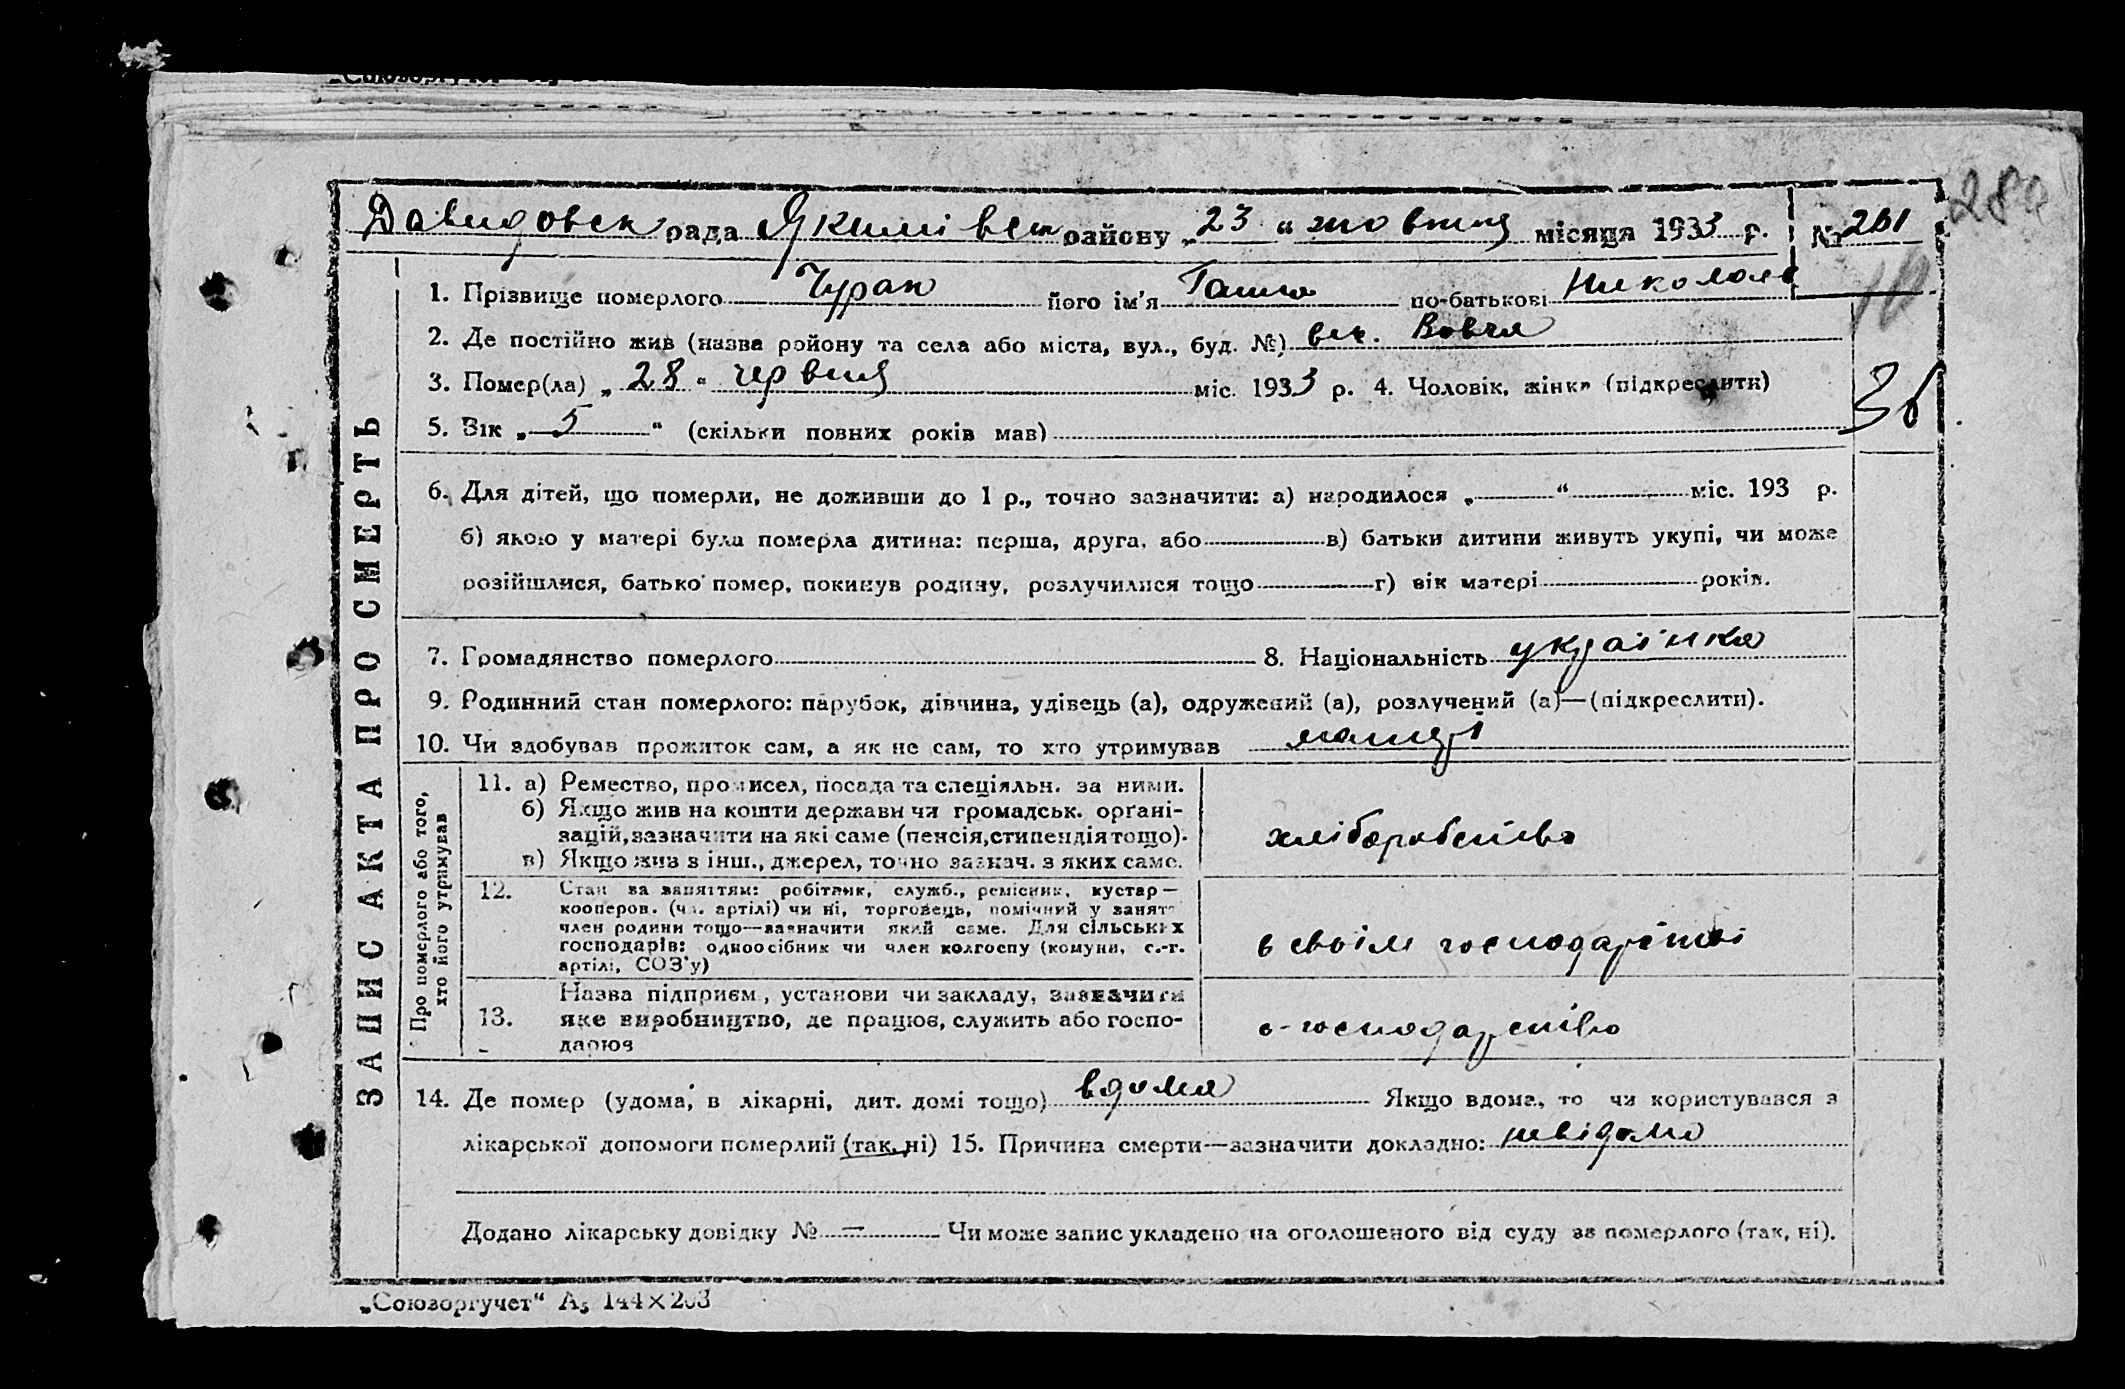 Давидовск рада Якимівськ району „23“ жовтня місяця 1933 р. № 261
28а
1. Прізвище померлого Чурап його ім'я Ганна по-батькові Николаев
2. Де постійно жив (назва району та села або міста, вул., буд. №) вис. Вовча
3. Помер(ла) „28“ червня міс. 1933 р. 4. Чоловік, жінка (підкреслити)
5. Вік „5“ (скільки повних років мав)
6. Для дітей, що померли, не доживши до 1 р., точно зазначити: а) народилося „ “ міс. 193 р.
б) якою у матері була померла дитина: перша, друга, або в) батьки дитини живуть укупі, чи може
розійшлися, батько помер, покинув родину, розлучилися тощо г) вік матері років.
7. Громадянство померлого 8. Національність українка
9. Родинний стан померлого: парубок, дівчина, удівець (а), одружений (а), розлучений (а)—(підкреслити).
10. Чи здобував прожиток сам, а як не сам, то хто утримував матері
ЗАПИС АКТА ПРО СМЕРТЬ
Про померлого або того,
хто його утримував
11. а) Ремество, промисел, посада та спеціяльн. за ними.
б) Якщо жив на кошти держави чи громадськ. орґані-
зацій, зазначити на які саме (пенсія, стипендія тощо).
в) Якщо жив з інш., джерел, точно зазнач. з яких саме.
хліборобство
12. Стан за заняттям: робітник, служб., ремісник, кустар—
кооперов. (чл. артілі) чи ні, торговець, помічний у занятт
член родини тощо—зазначити який саме. Для сільських
господарів: одноосібник чи член колгоспу (комуни, с.-г.
артілі, СОЗ'у)
в своїм господарстві
13. Назва підприєм., установи чи закладу, зазначити
яке виробництво, де працює, служить або госпо-
дарює
с-господарство
14. Де помер (удома, в лікарні, дит. домі тощо) вдома Якщо вдома, то чи користувався з
лікарської допомоги померлий (так, ні) 15. Причина смерти—зазначити докладно: невідомо
Додано лікарську довідку № — Чи може запис укладено на оголошеного від суду за померлого (так, ні).
„Союзоргучет“ А₅ 144×203